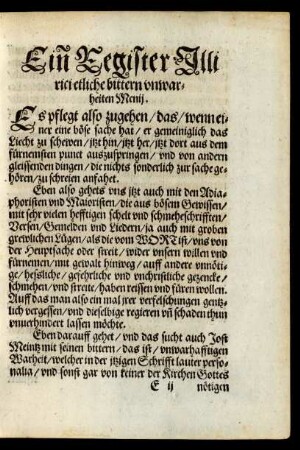 Ein Register Illi
rici etliche bittern vnwar-
heiten Menij.
Es pflegt also zugehen/ das/ wenn ei-
ner eine böse sache hat/ er gemeiniglich das
Liecht zu schewen/ itzt hin/ itzt her/ itzt dort aus dem
fürnemsten punct auszuspringen/ vnd von andern
gleissenden dingen/ die nichts sonderlich zur sache ge-
hören/ zu schreien anfahet.
Eben also gehets vns itzt auch mit den Adia-
phoristen vnd Maioristen/ die aus bösem Gewissen/
mit sehr vielen hefftigen schelt vnd schmeheschrifften/
Versen/ Gemelden vnd Liedern/ ja auch mit groben
grewlichen Lügen/ als die vom WORT ist/ vns von
der Heuptsache oder streit/ wider vnsern willen vnd
fürnemen/ mit gewalt hinweg/ auff andere vnnöti-
ge/ hessliche/ gefehrliche vnd vnchristliche gezencke/
schmehen/ vnd streite/ haben reissen vnd füren wollen.
Auff das man also ein mal jrer verfelschungen gentz-
lich vergessen/ vnd dieselbige regieren vñ schaden thun
vnuerhindert lassen möchte.
Eben darauff gehet/ vnd das sucht auch Jost
Meintz mit seinen bittern/ das ist/ vnwarhafftigen
Warheit/ welcher in der itzigen Schrifft lauter perso-
nalia/ vnd sonst gar von keiner der Kirchen Gottes
E ij nötigen